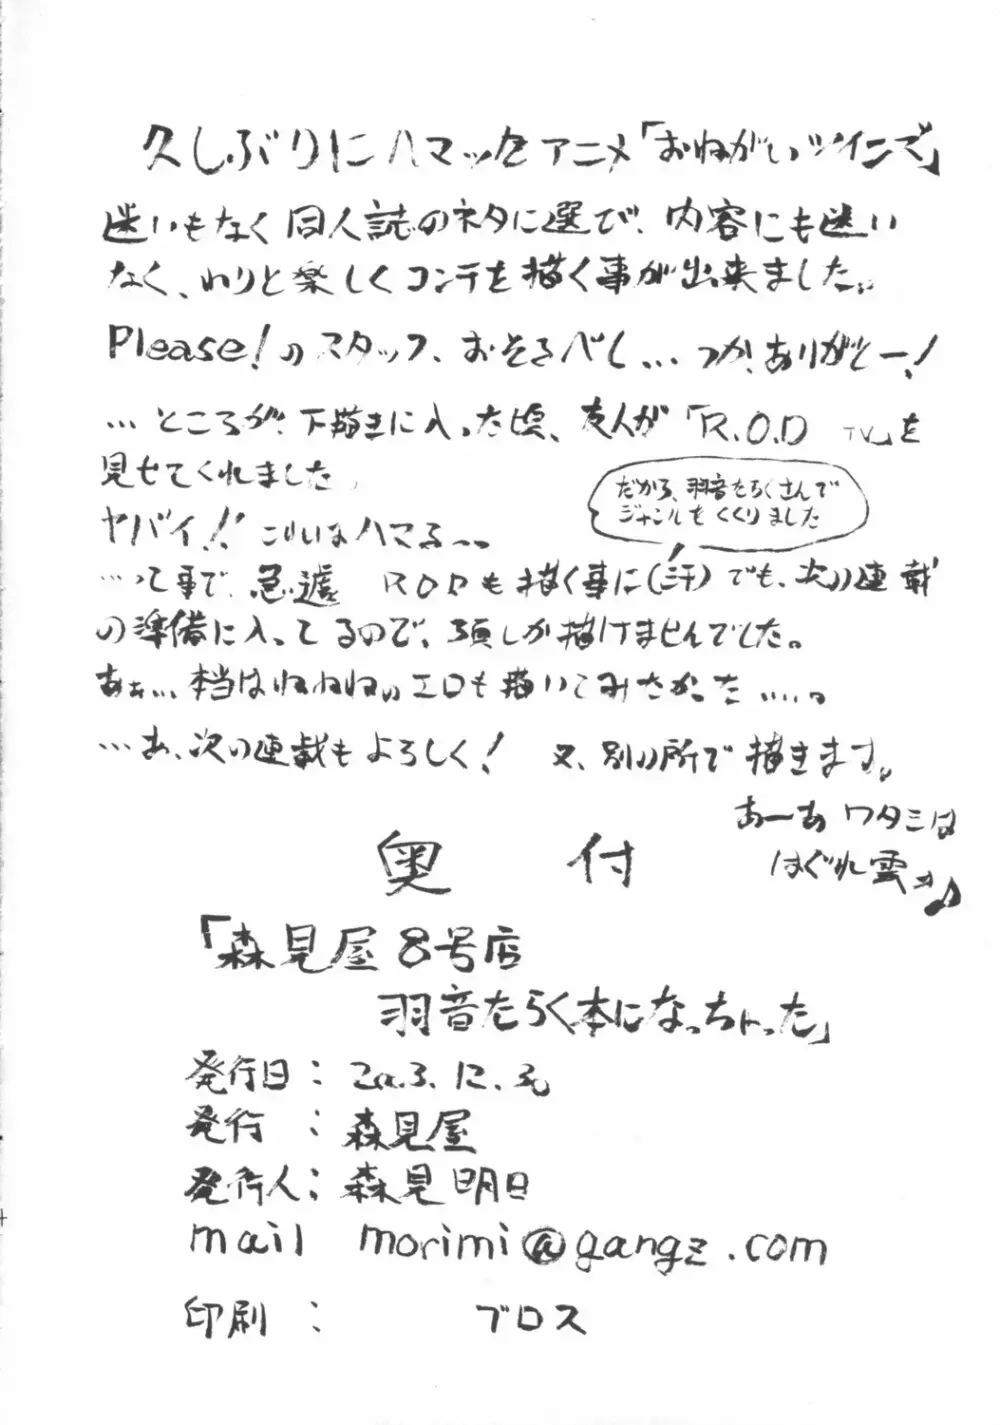 久しぶりにハマッたアニメ「おねがいツインズ」
迷いもなく同人誌のネタに選び、内容にも迷い
なく、わりと楽しくコンテを描く事が出来ました。
Please!のスタッフ、おそるべし…つか、ありがとー!
…ところが、下描きに入った頃、友人が「R.O.D TV」を
見せてくれました。
だから、羽音たらくさんで
ジャンルをくくりました
ヤバイ!!これはハマる〜。
…って事で、急遽 RODも描く事に(汗)でも、次の連載
の準備に入ってるので、3頁しか描けませんでした。
あぁ…本当はねねねのエロも描いてみたかった……。
…あ、次の連載もよろしく! 又、別の所で描きます。
あーあ ワタミは
はぐれ雲ォ♪
奥付
「森見屋8号店
羽音たらく本になっちゃった」
発行日:2003.12.30
発行:森見屋
発行人:森見明日
mail morimi@gangz.com
印刷: ブロス